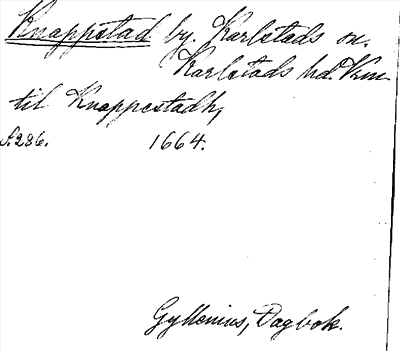 Knappstad by. Karlstads sn.
Karlstads hd. Vrm.
til Knappestadh,
S. 286. 1664.
Gyllenius, Dagbok.